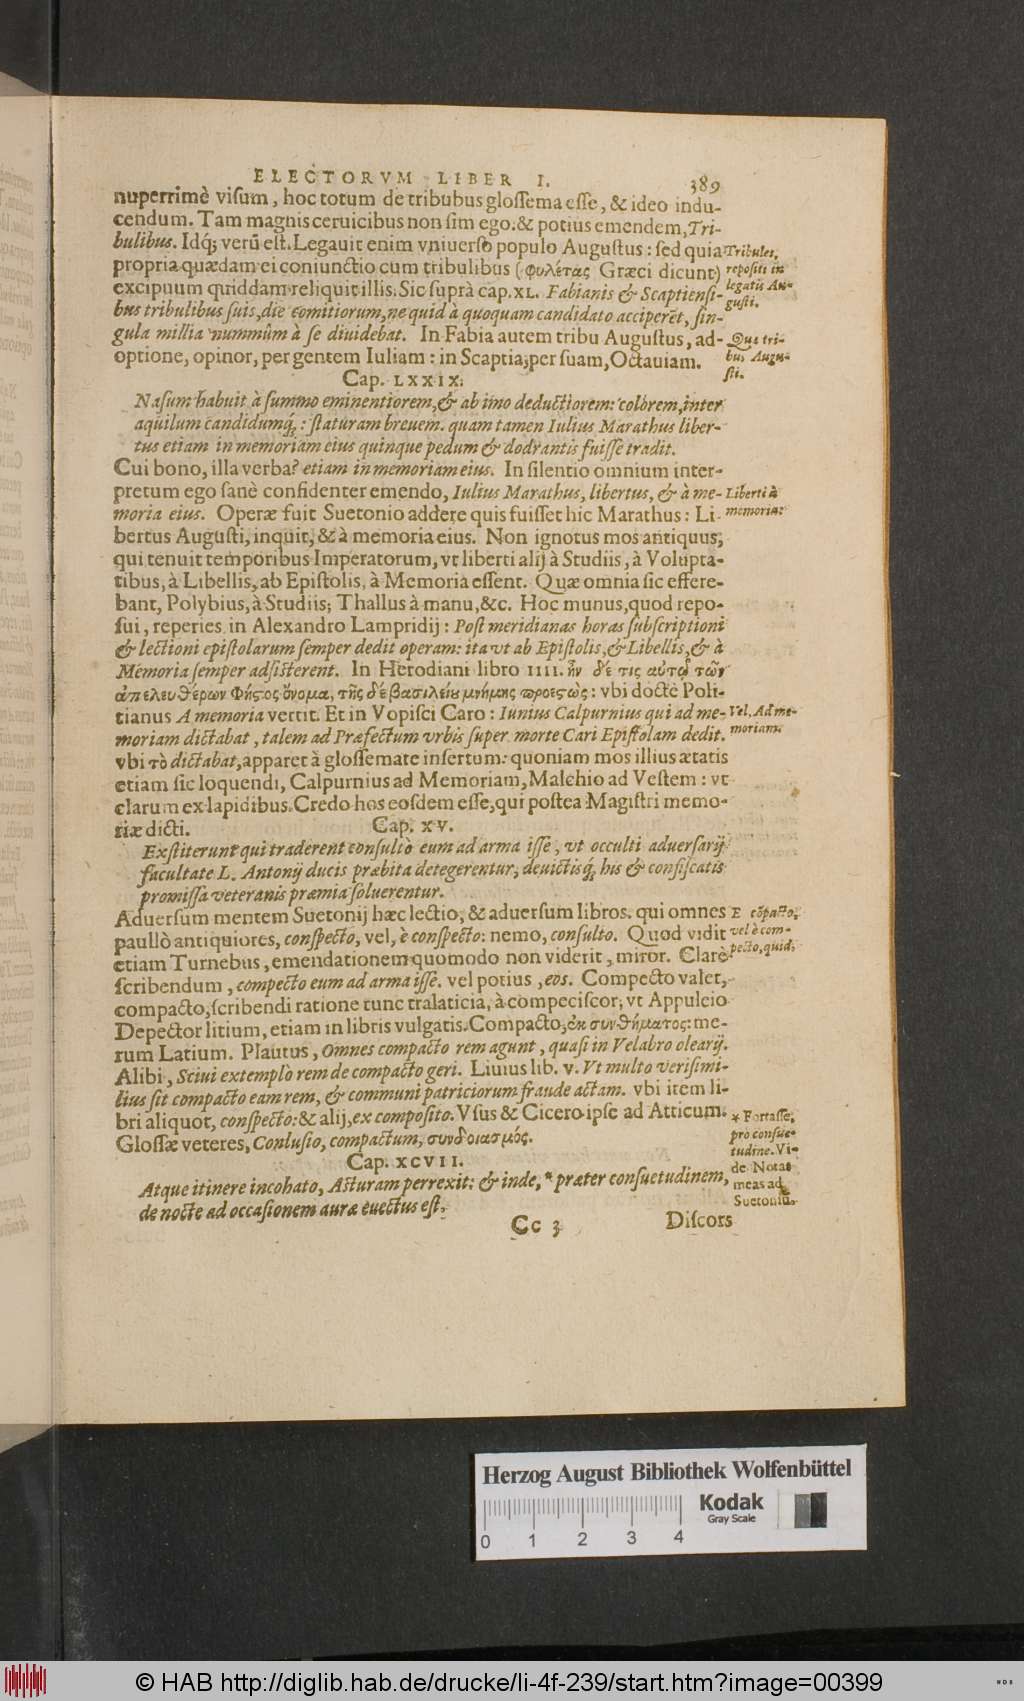 ELECTORVM LIBER I. 389
nuperrimè visum, hoc totum de tribubus glossema esse, & ideo indu-
cendum. Tam magnis ceruicibus non sim ego. & potius emendem, Tri-
bulibus. Idq́; verū est. Legauit enim vniuerso populo Augustus: sed quia
propria quædam ei coniunctio cum tribulibus (φυλέτας Græci dicunt)
excipuum quiddam reliquit illis. Sic suprà cap. XL. Fabianis & Scaptiensi-
bus tribulibus suis, die comitiorum, ne quid à quoquam candidato acciperet, sin-
gula millia nummûm à se diuidebat. In Fabia autem tribu Augustus, ad-
optione, opinor, per gentem Iuliam: in Scaptia, per suam, Octauiam.
Tribules,
repositi in
legatis Au-
gusti.
Quæ tri-
bus Augu-
sti.
Cap. LXXIX.
Nasum habuit à summo eminentiorem, & ab imo deductiorem: colorem, inter
aquilum candidumq́;: staturam breuem. quam tamen Iulius Marathus liber-
tus etiam in memoriam eius quinque pedum & dodrantis fuisse tradit.
Cui bono, illa verba? etiam in memoriam eius. In silentio omnium inter-
pretum ego sanè confidenter emendo, Iulius Marathus, libertus, & à me-
moria eius. Operæ fuit Suetonio addere quis fuisset hic Marathus: Li-
bertus Augusti, inquit, & à memoria eius. Non ignotus mos antiquus,
qui tenuit temporibus Imperatorum, vt liberti alij à Studiis, à Volupta-
tibus, à Libellis, ab Epistolis, à Memoria essent. Quæ omnia sic effere-
bant, Polybius, à Studiis; Thallus à manu, &c. Hoc munus, quod repo-
sui, reperies in Alexandro Lampridij: Post meridianas horas subscriptioni
& lectioni epistolarum semper dedit operam: ita vt ab Epistolis, & Libellis, & à
Memoria semper adsisterent. In Herodiani libro IIII. ἦν δέ τις αὐτῷ τῶν
ἀπελευθέρων Φῆστος ὄνομα, τῆς δὲ βασιλείου μνήμης προεστώς: vbi doctè Poli-
tianus A memoria vertit. Et in Vopisci Caro: Iunius Calpurnius qui ad me-
moriam dictabat, talem ad Præfectum vrbis super morte Cari Epistolam dedit.
vbi τὸ dictabat, apparet à glossemate insertum: quoniam mos illius ætatis
etiam sic loquendi, Calpurnius ad Memoriam, Malchio ad Vestem: vt
clarum ex lapidibus. Credo hos eosdem esse, qui postea Magistri memo-
riæ dicti.
Liberti à
memoria:
Vel, Ad me-
moriam.
Cap. XV.
Exstiterunt qui traderent consultò eum ad arma isse, vt occulti aduersarij
facultate L. Antonij ducis præbita detegerentur, deuictisq́; his & confiscatis
promissa veteranis præmia soluerentur.
Aduersum mentem Suetonij hæc lectio, & aduersum libros. qui omnes
paullò antiquiores, conspecto, vel, è conspecto: nemo, consulto. Quod vidit
etiam Turnebus, emendationem quomodo non viderit, miror. Clarè
scribendum, compecto eum ad arma isse. vel potius, eos. Compecto valet,
compacto, scribendi ratione tunc tralaticia, à compeciscor; vt Appuleio
Depector litium, etiam in libris vulgatis. Compacto, ἐκ συνθήματος: me-
rum Latium. Plautus, Omnes compacto rem agunt, quasi in Velabro olearij.
Alibi, Sciui extemplo rem de compacto geri. Liuius lib. V. Vt multo verisimi-
lius sit compacto eam rem, & communi patriciorum fraude actam. vbi item li-
bri aliquot, conspecto: & alij, ex composito. Vsus & Cicero ipse ad Atticum.
Glossæ veteres, Conlusio, compactum, συνδοιασμός.
E cōpacto,
vel è com-
pecto, quid;
Cap. XCVII.
Atque itinere incohato, Asturam perrexit: & inde, * præter consuetudinem,
de nocte ad occasionem auræ euectus est.
* Fortasse,
pro consue-
tudine. Vi-
de Notas
meas ad
Suetoniū.
Cc 3 Discors
Herzog August Bibliothek Wolfenbüttel
0 1 2 3 4
Kodak
Gray Scale
© HAB http://diglib.hab.de/drucke/li-4f-239/start.htm?image=00399